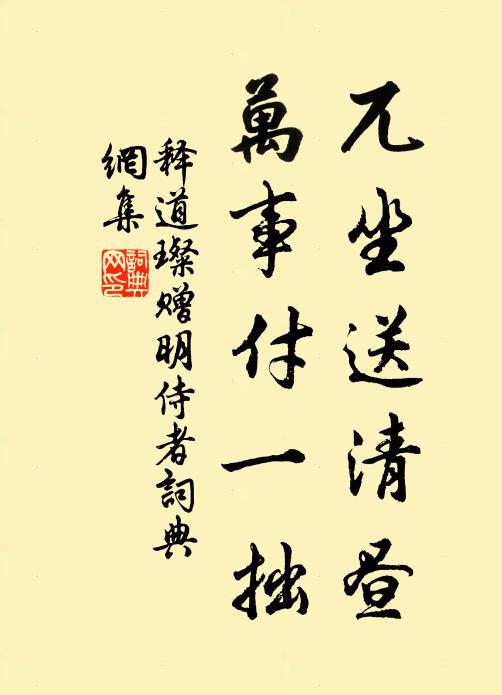 兀坐送清昼
萬事付一拙
释道璨赠明侍者詞典
網集
詞典网印